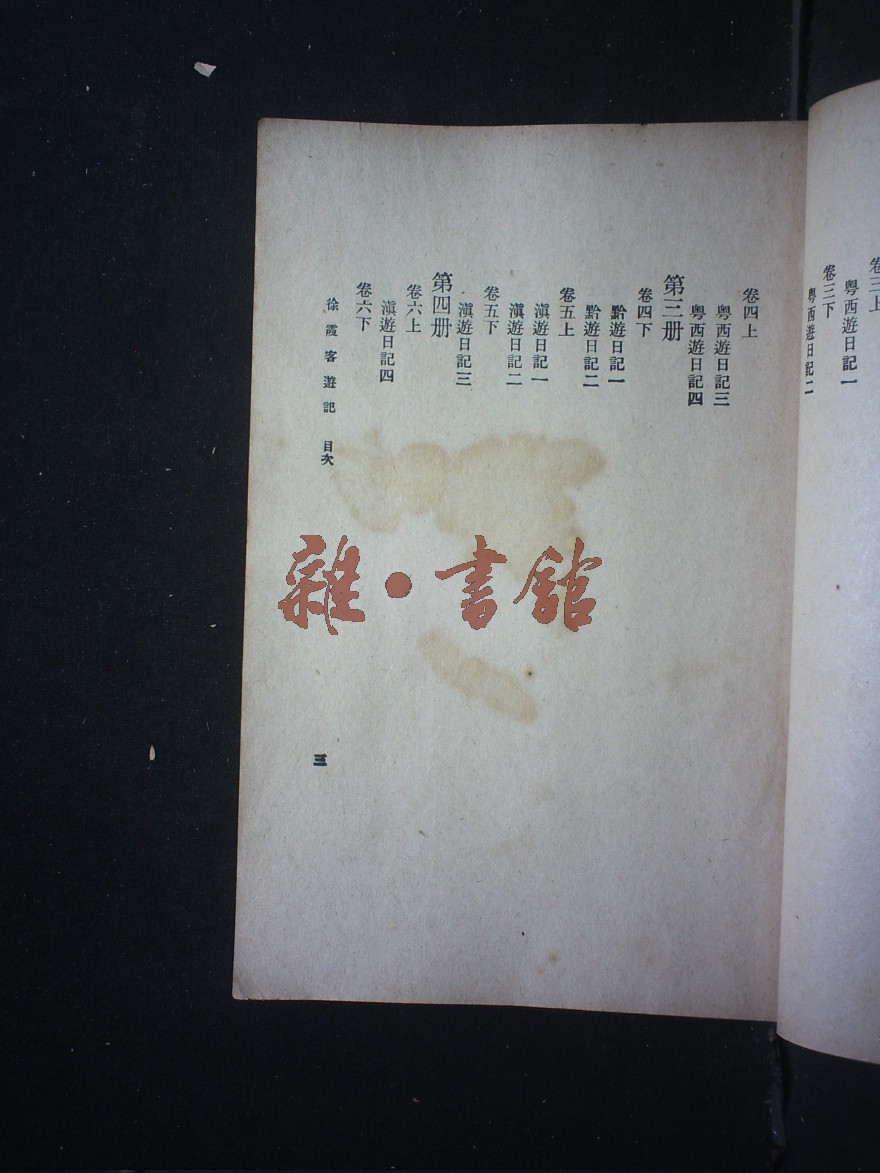 卷三上
粵西遊日記一
卷三下
粵西遊日記二
卷四上
粵西遊日記三
粵西遊日記四
第三册
卷四下
黔遊日記一
黔遊日記二
卷五上
滇遊日記一
滇遊日記二
卷五下
滇遊日記三
第四册
卷六上
滇遊日記四
卷六下
徐霞客遊記 目次
三
雜·書館